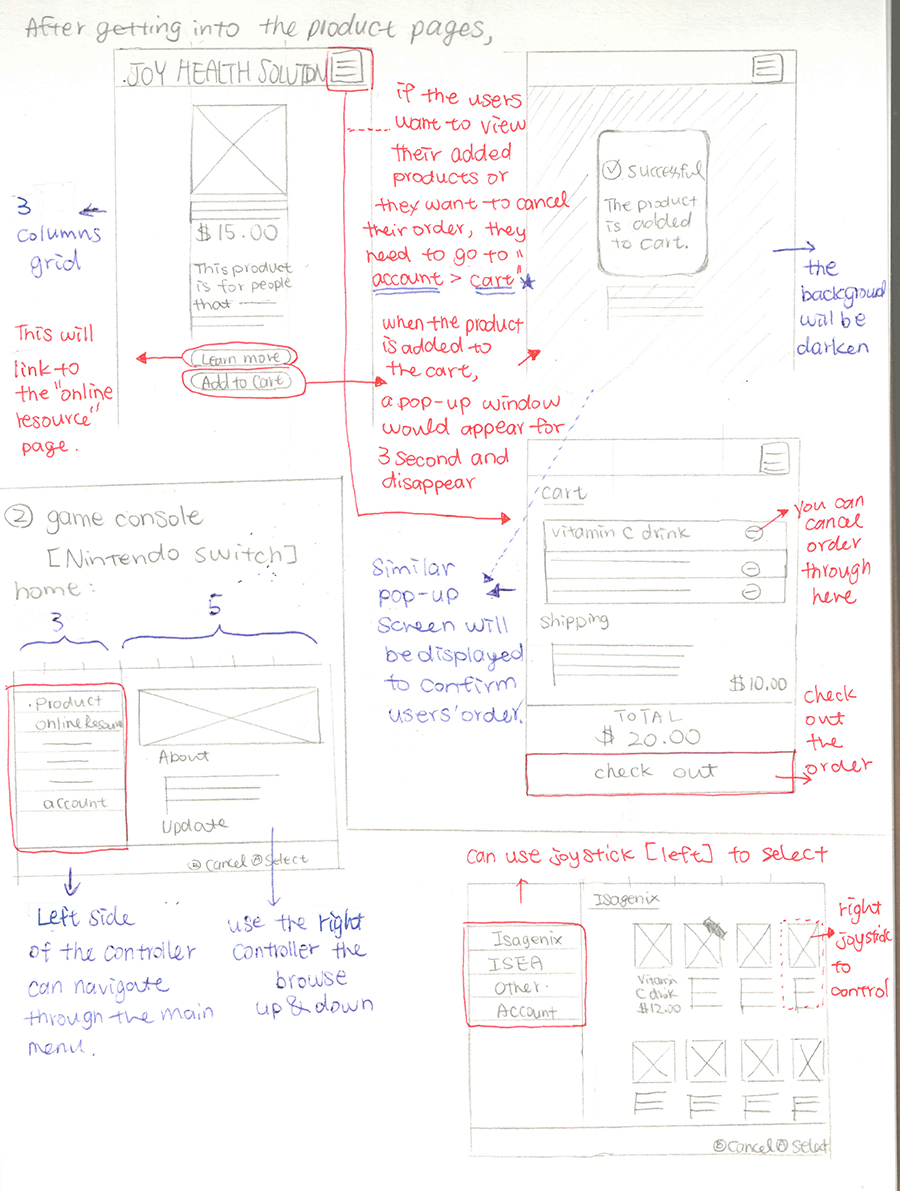 After getting into the product pages,
.JOY HEALTH SOLUTION
$15.00
This product
is for people
that
Learn more
Add to Cart
3
columns
grid
This will
link to
the "online
resource"
page.
if the users
want to view
their added
products or
they want to cancel
their order, they
need to go to "
account > cart"
when the product
is added to
the cart,
a pop-up window
would appear for
3 second and
disappear
successful
The product
is added
to cart.
the
backgroud
will be
darken
cart
vitamin C drink
shipping
$10.00
TOTAL
$ 20.00
check out
you can
cancel
order
through
here
check
out
the
order
Similar
pop-up
screen will
be displayed
to confirm
users' order.
② game console
[Nintendo switch]
home:
3
5
. Product
online Resourc
account
About
Update
Ⓑ Cancel Ⓐ Select
Left side
of the controller
can navigate
through the main
menu.
use the right
controller the
browse
up & down
can use joystick [left] to select
Isagenix
ISEA
other.
Account
Isagenix
Vitamin
C drink
$12.00
right
joystick
to
control
Ⓑ Cancel Ⓐ Select